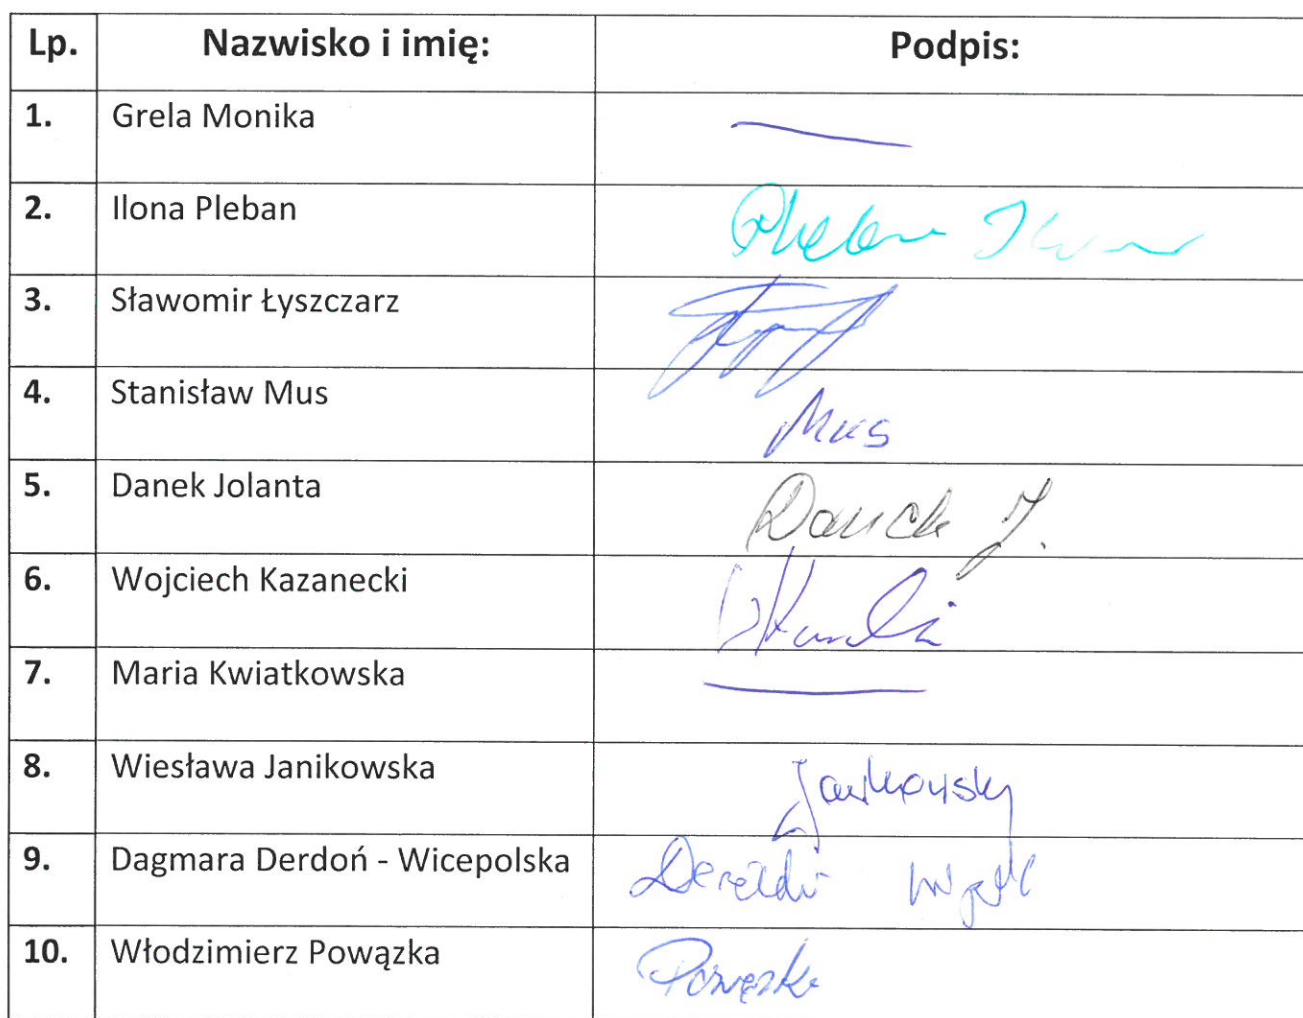 Lp. Nazwisko i imię: Podpis:
1. Grela Monika
2. Ilona Pleban Pleban
3. Sławomir Łyszczarz
4. Stanisław Mus Mus
5. Danek Jolanta Danek J.
6. Wojciech Kazanecki
7. Maria Kwiatkowska
8. Wiesława Janikowska
9. Dagmara Derdoń - Wicepolska
10. Włodzimierz Powązka Powązka